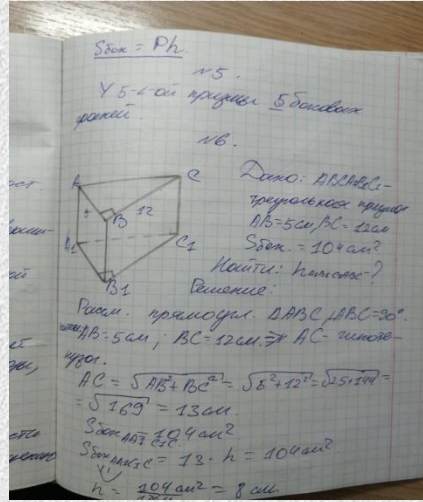 Sбок = Ph
№5.
У 5-и-ой призмы 5 боковых
граней.
№6.
A
C
5
B
12
A1
C1
B1
Дано: ABCA1B1C1-
треугольная призма
AB=5см, BC=12см
Sбок.=104см²
Найти: h
-?
Решение:
Рассм. прямоугл. ΔABC, ABC=90°.
AB=5см; BC=12см. ⇒ AC- гипоте-
нуза.
AC = √AB²+BC² = √5²+12² = √25+144 =
= √169 = 13см.
Sбок AA1C1C = 104см²
Sбок AA1C1C = 13·h = 104см²
h = 104см² = 8см